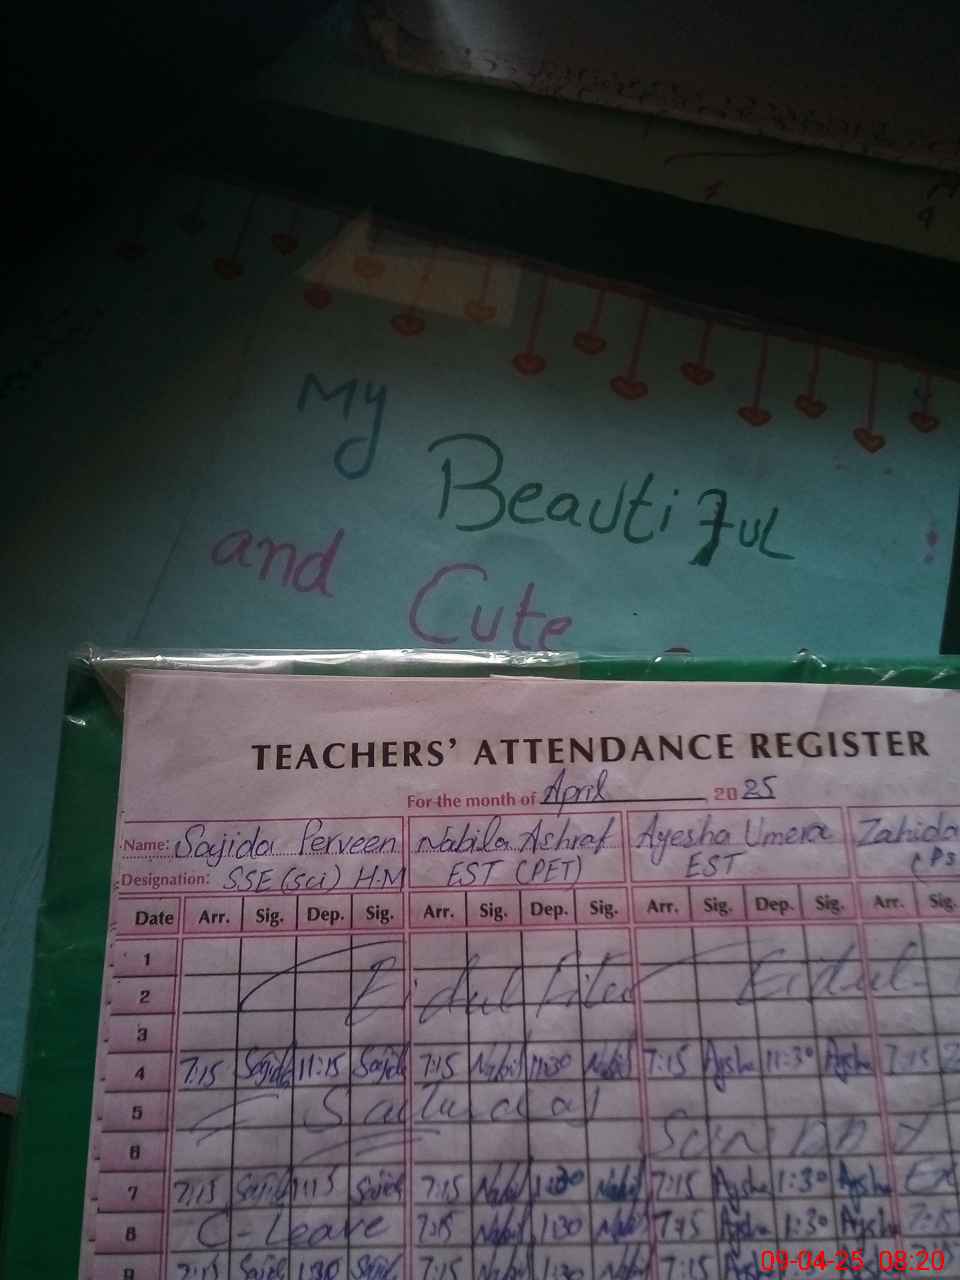 My
Beautiful
and
Cute
TEACHERS' ATTENDANCE REGISTER
For the month of April 2025
Name: Sajida Perveen Nabila Ashraf Ayesha Umera Zahida
Designation: SSE (Sci) H.M EST (PET) EST
Date Arr. Sig. Dep. Sig. Arr. Sig. Dep. Sig. Arr. Sig. Dep. Sig. Arr. Sig.
1
2 Eidul Fiter Eidul
3
4 7:15 Sajida 11:15 Sajida 7:15 Nabil 11:30 Nabil 7:15 Aysha 11:30 Aysha 7:15
5 Saturday
6 Sunday
7 7:15 Sajida 1:15 Sajida 7:15 Nabil 1:30 Nabil 7:15 Aysha 1:30 Aysha
8 C-Leave 7:15 Nabil 1:30 Nabil 7:15 Aysha 1:30 Aysha 7:15
9 7:15 Sajida 1:30 Sajida 7:15 Nabil 1:30 Nabil 7:15 Aysha 1:30 Aysha
09-04-25 08:20